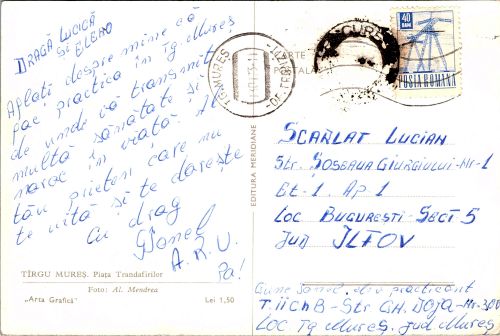 DRAGĂ LUCICĂ
ȘI ELENO
Aflați despre mine că
fac practica în Tg Mureș
de unde vă transmit
multă sănătate și
noroc în viață! Al
tău prieten care nu
te uită și te dorește
Cu drag
Ionel
A.R.U.
Pa!
TÎRGU MUREȘ. Piața Trandafirilor
Foto: Al. Mendrea
„Arta Grafică”
Lei 1,50
EDITURA MERIDIANE
CARTE
POȘTALĂ
TG-MUREȘ
40
BANI
POSTA ROMANA
SCARLAT LUCIAN
Str. ȘOSEAUA GIURGIULUI-Nr-1
Et-1. Ap.1
LOC BUCUREȘTI-SECT 5
Jud ILFOV
practicant
Str GH. DOJA-Nr.
LOC Tg Mureș, Jud Mureș